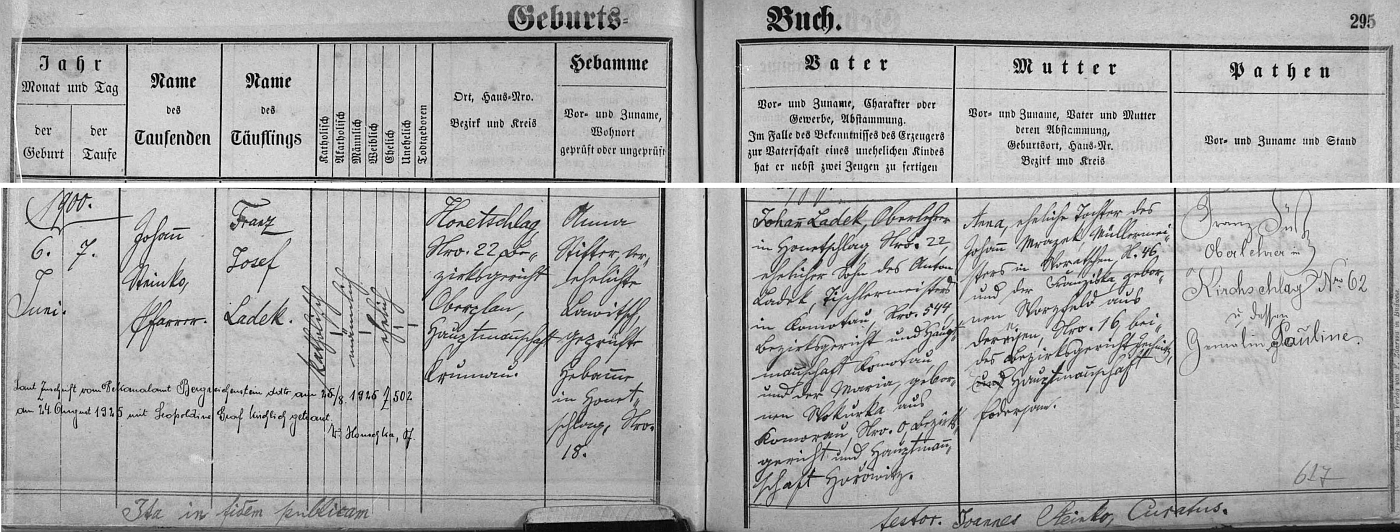 Geburts-
Buch.
295
Jahr
Monat und Tag
der
Geburt
der
Taufe
Name
des
Taufenden
Name
des
Täuflings
Katholisch
Akatholisch
Männlich
Weiblich
Ehelich
Unehelich
Todtgeboren
Ort, Haus-Nro.
Bezirk und Kreis
Hebamme
Vor- und Zuname,
Wohnort
geprüft oder ungeprüft
Vater
Vor- und Zuname, Charakter oder
Gewerbe, Abstammung.
Im Falle des Bekenntnisses des Erzeugers
zur Vaterschaft eines unehelichen Kindes
hat er nebst zwei Zeugen zu fertigen
Mutter
Vor- und Zuname, Vater und Mutter
deren Abstammung,
Geburtsort, Haus-Nr.
Bezirk und Kreis
Pathen
Vor- und Zuname und Stand
1900.
6. 7.
Juni.
Johann
Steinko,
Pfarrer.
Franz
Josef
Ladek.
katholisch
männlich
ehelich
Honetschlag
Nro. 22, Be-
zirksgericht
Oberplan,
Hauptmannschaft
Krumau.
Anna
Stifter, ver-
ehelichte
geprüfte
Hebamme
in Honet-
schlag, Nro.
18.
Johann Ladek, Oberlehrer
in Honetschlag Nro. 22,
ehelicher Sohn des Anton
Ladek, Tischlermeisters
in Komotau, Nro. 544,
Bezirksgericht und Haupt-
mannschaft Komotau
und der Maria, gebor-
nen Wokurka aus
Komorau, Nro. 0, Bezirks-
gericht und Hauptmann-
schaft Hořowitz.
Anna, eheliche Tochter des
Johann Mrazek, Müllermei-
sters in Woratschen, N. 46,
und der Franziska gebor-
nen
aus
Nro. 16, bei-
des Bezirksgericht Jechnitz,
und Hauptmannschaft
Podersam.
Franz
Oberlehrer in
Kirchschlag Nr. 62
u dessen
Gemalin Pauline
Laut Zuschrift vom Pfarramt Bergreichenstein ddto. am 25/8. 1925 Z. 502
am 24. August 1925 mit Leopoldine Graf kirchlich getraut.
617
Ita in fidem publicam
testor. Joannes Steinko, Curatus.